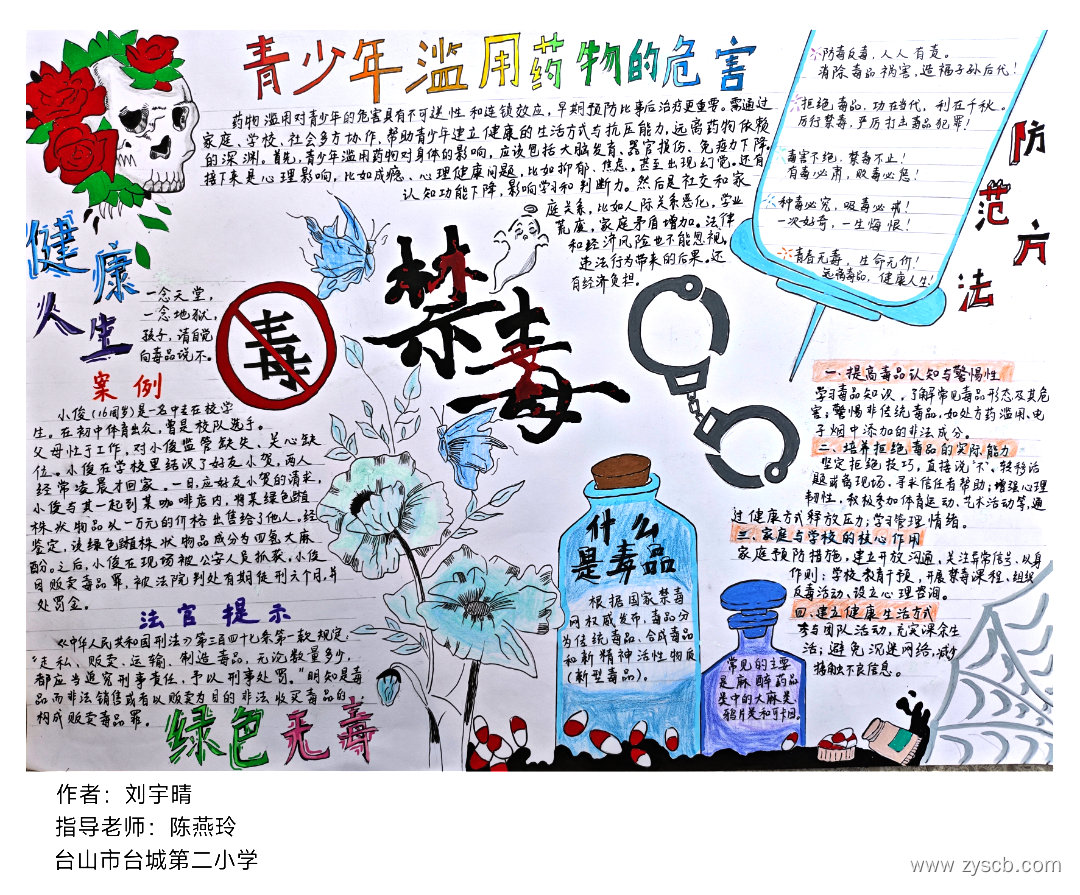 青少年滥用药物的危害
药物滥用对青少年的危害具有不可逆性和连锁效应，早期预防比事后治疗更重要。需通过
家庭、学校、社会多方协作，帮助青少年建立健康的生活方式与抗压能力，远离药物依赖
的深渊。首先，青少年滥用药物对身体的影响，应该包括大脑发育、器官损伤、免疫力下降。
接下来是心理影响，比如成瘾、心理健康问题，比如抑郁、焦虑，甚至出现幻觉。还有
认知功能下降，影响学习和判断力。然后是社交和家
庭关系，比如人际关系恶化，学业
荒废，家庭矛盾增加。法律
和经济风险也不能忽视，
违法行为带来的后果。还
有经济负担。
防毒反毒，人人有责。
消除毒品祸害，造福子孙后代！
拒绝毒品，功在当代，利在千秋。
厉行禁毒，严厉打击毒品犯罪！
毒害不绝，禁毒不止！
有毒必肃，贩毒必惩！
种毒必究，吸毒必戒！
一次好奇，一生悔恨！
青春无毒，生命无价！
远离毒品，健康人生！
防范方法
健康
人生
一念天堂，
一念地狱，
孩子，请自觉
向毒品说不。
毒
禁毒
案例
小俊（16周岁）是一名中专在校学
生。在初中体育出众，曾是校队选手。
父母忙于工作，对小俊监管缺失、关心缺
位。小俊在学校里结识了好友小贺，两人
经常凌晨才回家。一日，应好友小贺的请求，
小俊与其一起到某咖啡店内，将某绿色植
株状物品以一万元的价格出售给了他人。经
鉴定，该绿色植株状物品成分为四氢大麻
酚。之后，小俊在现场被公安人员抓获。小俊
因贩卖毒品罪，被法院判处有期徒刑六个月，并
处罚金。
法官提示
《中华人民共和国刑法》第三百四十七条第一款规定：
“走私、贩卖、运输、制造毒品，无论数量多少，
都应当追究刑事责任，予以刑事处罚。”明知是毒
品而非法销售或者以贩卖为目的非法收买毒品的，
构成贩卖毒品罪。
绿色无毒
什么
是毒品
根据国家禁毒
网权威发布，毒品分
为传统毒品、合成毒品
和新精神活性物质
（新型毒品）。
常见的主要
是麻醉药品
类中的大麻类、
鸦片类和可卡因。
一、提高毒品认知与警惕性
学习毒品知识，了解常见毒品形态及其危
害，警惕非传统毒品，如处方药滥用、电
子烟中添加的非法成分。
二、培养拒绝毒品的实际能力
坚定拒绝技巧，直接说“不”，转移话
题或离现场、寻求信任者帮助；增强心理
韧性，积极参加体育运动、艺术活动等，通
过健康方式释放压力；学习管理情绪。
三、家庭与学校的核心作用
家庭预防措施，建立开放沟通，关注异常信号、以身
作则；学校教育干预，开展禁毒课程、组织
反毒活动、设立心理咨询。
四、建立健康生活方式
参与团队活动，充实课余生
活；避免沉迷网络，减少
接触不良信息。
作者：刘宇晴
指导老师：陈燕玲
台山市台城第二小学
www.zyscb.com